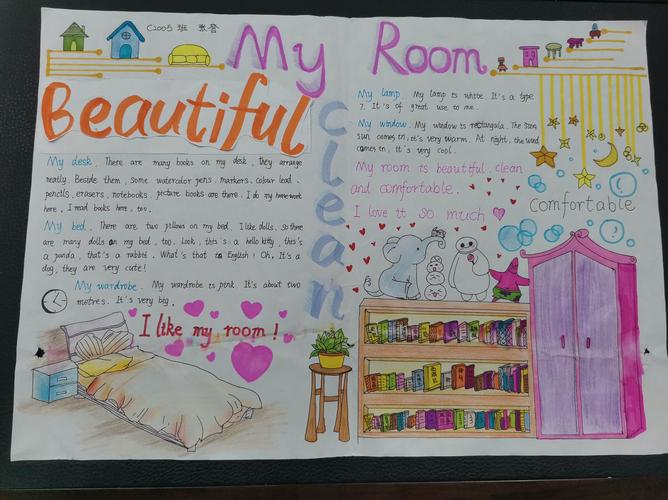 C2005 班 张誉
My Room
Beautiful
Clean
My desk. There are many books on my desk, they arrange
neatly. Beside them, Some watercolor pens, markers, colour lead
pencils, erasers, notebooks, picture books are there. I do my homework
here. I read books here, too.
My bed. There are two pillows on my bed. I like dolls, so there
are many dolls on my bed, too. Look, this is a hello kitty, this's
a panda, that's a rabbit. What's that in English? Oh, It's a
dog, they are very cute!
My wardrobe. My wardrobe is pink. It's about two
metres. It's very big.
I like my room!
My lamp. My lamp is white. It's a type
7. It's of great use to me.
My window. My window is rectangala. The
sun comes in, it's very warm. At night, the wind
comes in, it's very cool.
My room is beautiful, clean
and comfortable.
I love it so much
Comfortable